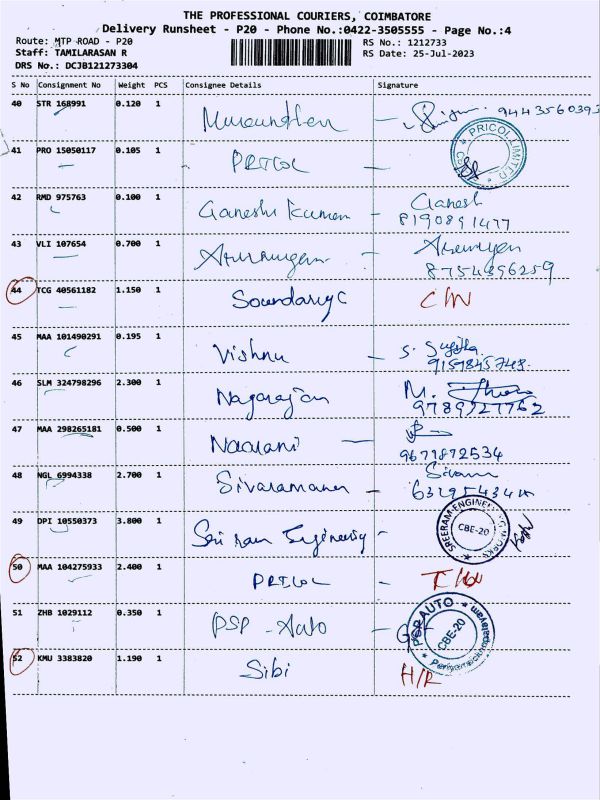 THE PROFESSIONAL COURIERS, COIMBATORE
Delivery Runsheet - P20 - Phone No.:0422-3505555 - Page No.:4
Route: MTP ROAD - P20 RS No.: 1212733
Staff: TAMILARASAN R RS Date: 25-Jul-2023
DRS No.: DCJB121273304
S No Consignment No Weight PCS Consignee Details Signature
40 STR 168991 0.120 1 9443560393
PRICOL LIMITED
41 PRO 15050117 0.105 1 PRICOL
42 RMD 975763 0.100 1 Ganesh Kumar Ganesh
8190891477
43 VLI 107654 0.700 1 Arumugam
8754396259
44 TCG 40561182 1.150 1 C/N
45 MAA 101490291 0.195 1 Vishnu S. Sujitha
9159845748
46 SLM 324798296 2.300 1 Nagarajan M.
9789727762
47 MAA 298265181 0.500 1
9671872534
48 NGL 6994338 2.700 1 Sivaraman
49 DPI 10550373 3.800 1 Sri ram Engineering
SREERAM ENGINEERING WORKS
CBE-20
50 MAA 104275933 2.400 1 PRICOL
51 ZHB 1029112 0.350 1 PSP - Auto
PSP AUTO
CBE-20
52 KMU 3383820 1.190 1 Sibi H/R